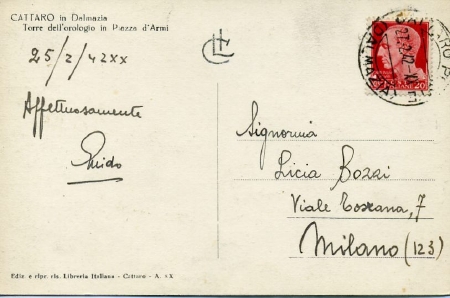 CATTARO in Dalmazia
Torre dell'orologio in Piazza d'Armi
25/2/42 XX
Affettuosamente
Guido
Signorina
Licia Bozzi
Viale Toscana, 7
Milano (123)
Ediz. e ripr. ris. Libreria Italiana - Cattaro - A. XX